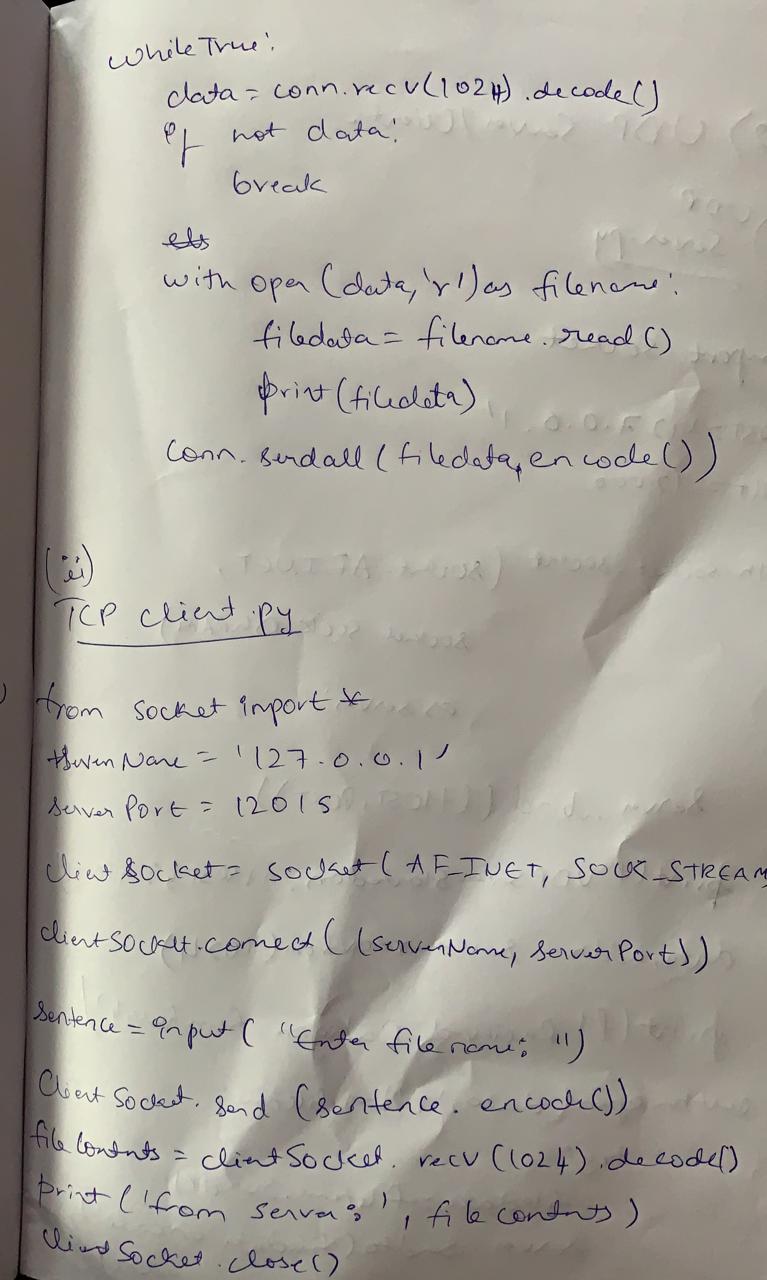 while True:
data = conn.recv(1024).decode()
if not data:
break
with open (data,'r') as filename:
filedata = filename.read()
print(filedata)
conn.sendall(filedata,encode())
(ii)
TCP client.py
from socket import *
serverName = '127.0.0.1'
serverPort = 12015
clientSocket = socket(AF_INET, SOCK_STREAM
clientSocket.connect((serverName, serverPort))
sentence = input( "Enter file name: ")
Client Socket. send (sentence. encode())
file Contents = clientSocket. recv (1024).decode()
print ('from server:', file contents)
clientSocket.close()